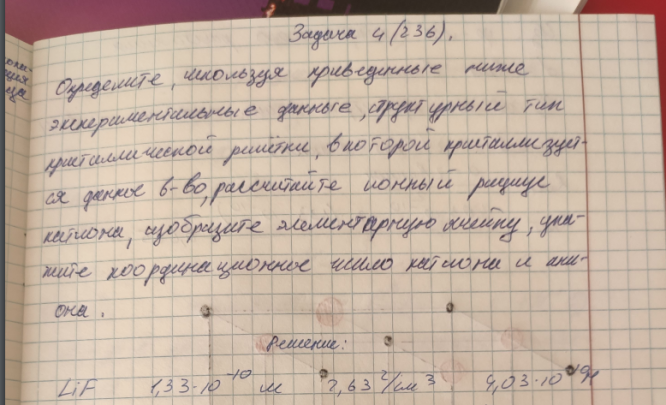 Задача 4 (236).
Определите, используя приведенные ниже
экспериментальные данные, структурный тип
кристаллической решётки, в которой кристаллизует-
ся данное в-во, рассчитайте ионный радиус
катиона, изобразите элементарную ячейку, ука-
жите координационное число катиона и ани-
она.
Решение:
LiF 1,33·10⁻¹⁰ м 2,63 г/см³ 4,03·10⁻¹⁰